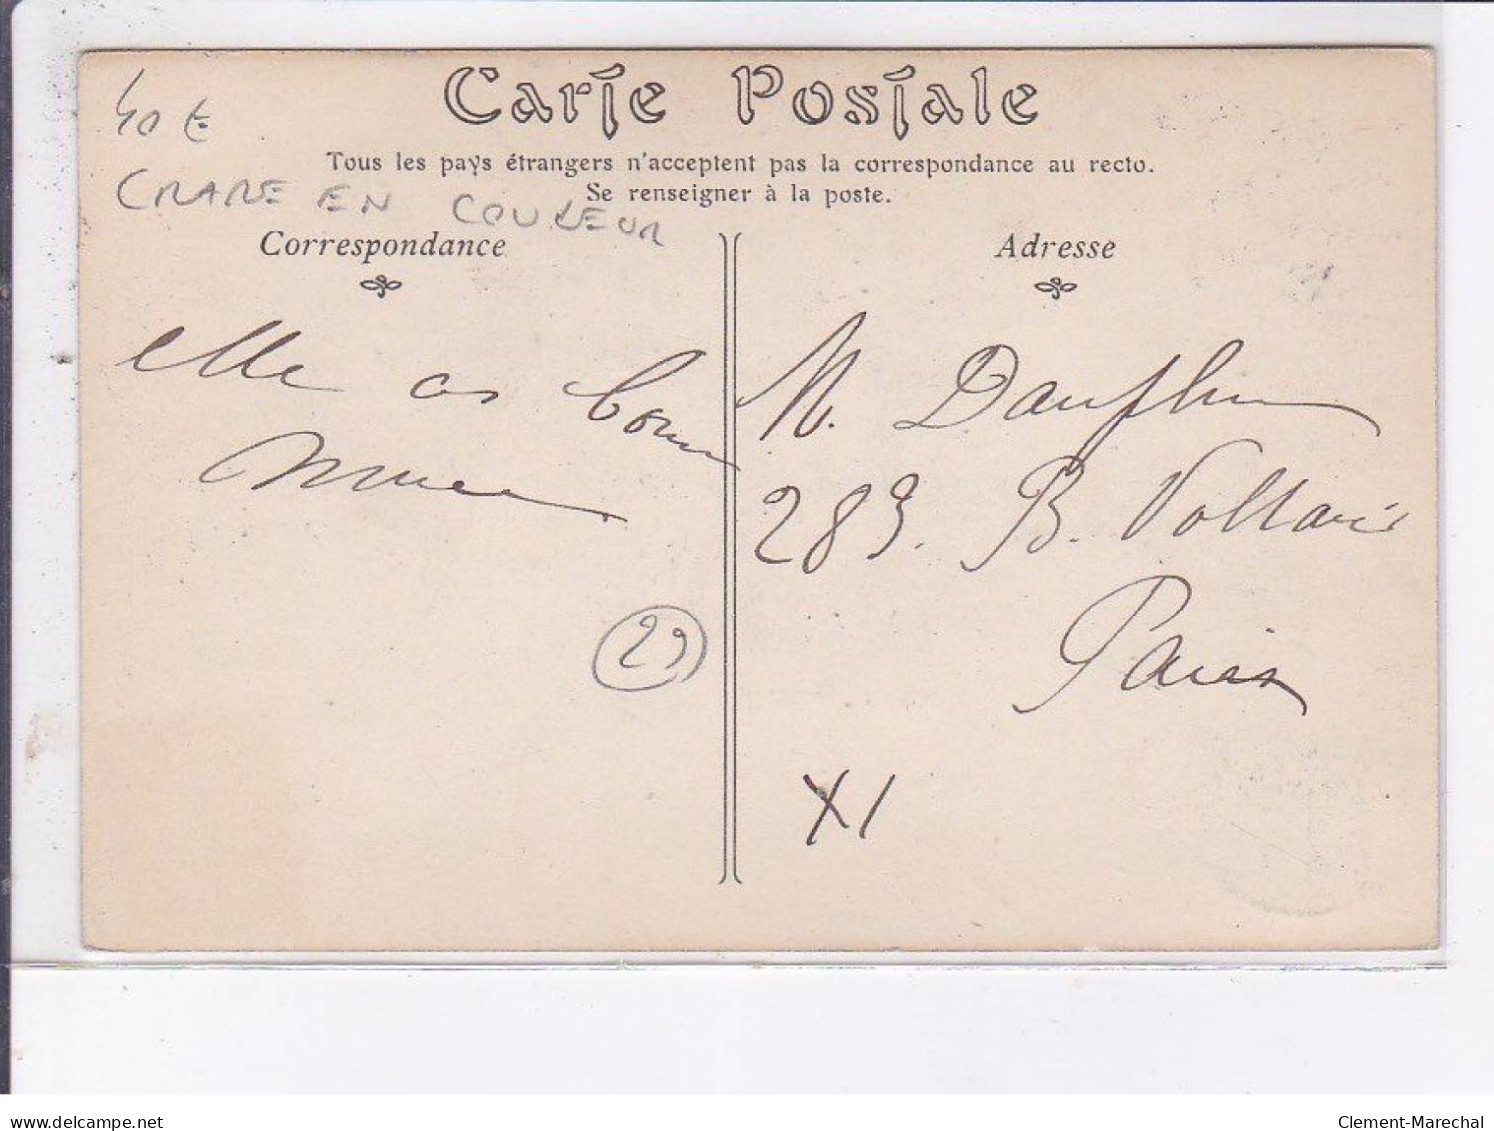 40 €
Carte Postale
Tous les pays étrangers n'acceptent pas la correspondance au recto.
Se renseigner à la poste.
CRARE EN COULEUR
Correspondance
Adresse
elle as bonne
mine
M. Dauphin
283. B. Voltaire
Paris
29
XI
delcampe.net
Clement-Marechal